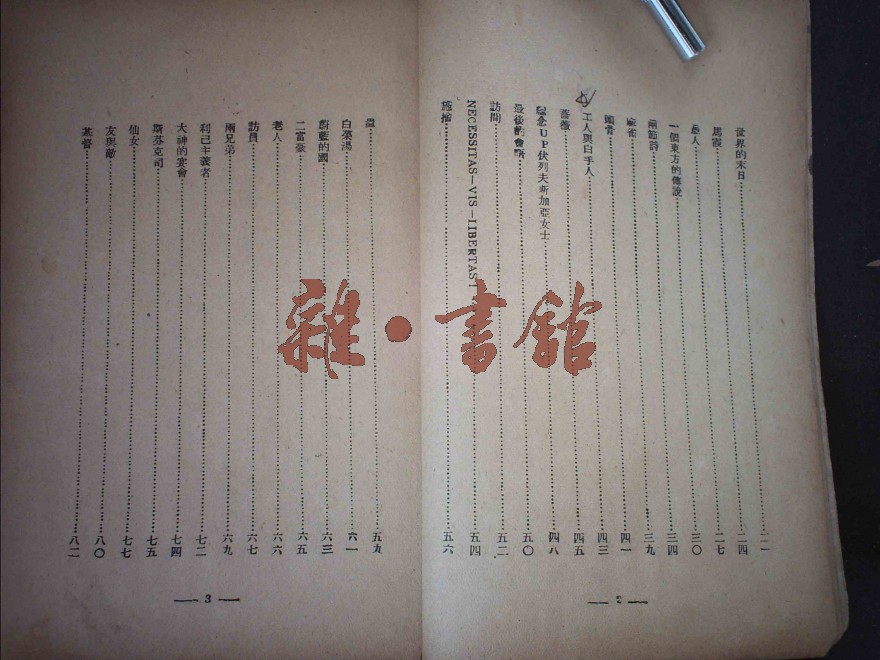 世界的末日……二一
馬霞……二四
愚人……二七
一個東方的傳說……三〇
兩節詩……三四
麻雀……三九
頭骨……四一
工人與白手人……四三
薔薇……四五
紀念UP伏列夫斯加亞女士……四八
最後的會晤……五〇
訪問……五二
NECESSITAS—VIS—LIBERTAS!……五四
施捨……五六
— 2 —
蟲……五九
白菜湯……六一
蔚藍的國……六三
二富豪……六五
老人……六六
訪員……六七
兩兄弟……六九
利己主義者……七二
大神的宴會……七四
斯芬克司……七五
仙女……七七
友與敵……八〇
基督……八二
— 3 —
雜·書館